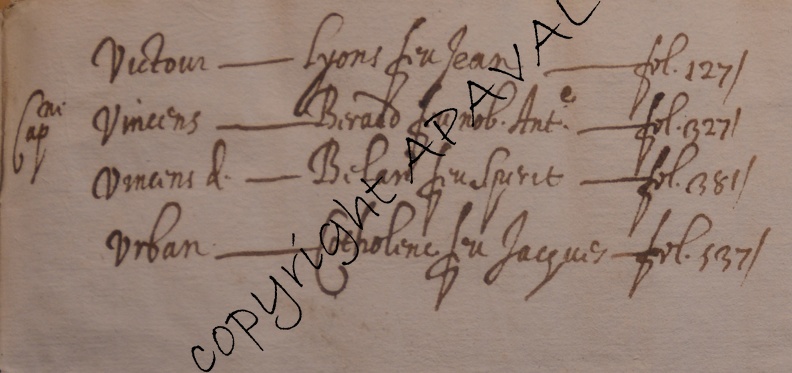 Victour — Lyons feu Jean — fol. 127/
Cap^ni. Vincens — Beraud feu nob. Ant^e. — fol. 327/
Vincens d. — feu Spirit — fol. 381/
Urban — feu Jacques — fol. 537/
copyright APAVAL